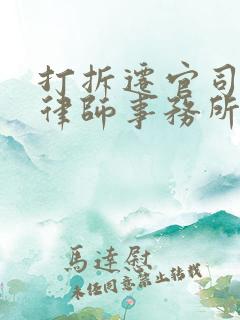 打拆遷官司
律師事務所
馬達慰
未經同意禁止轉載